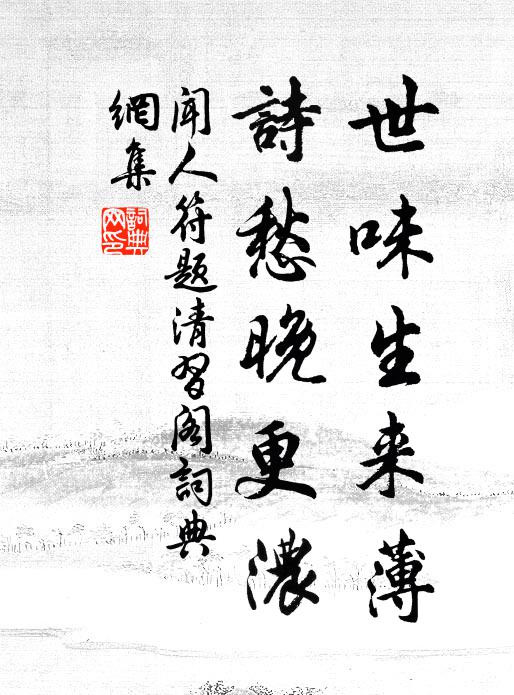 世味生来薄
詩愁晚更濃
聞人符題清習阁詞典
網集
詞典
网印